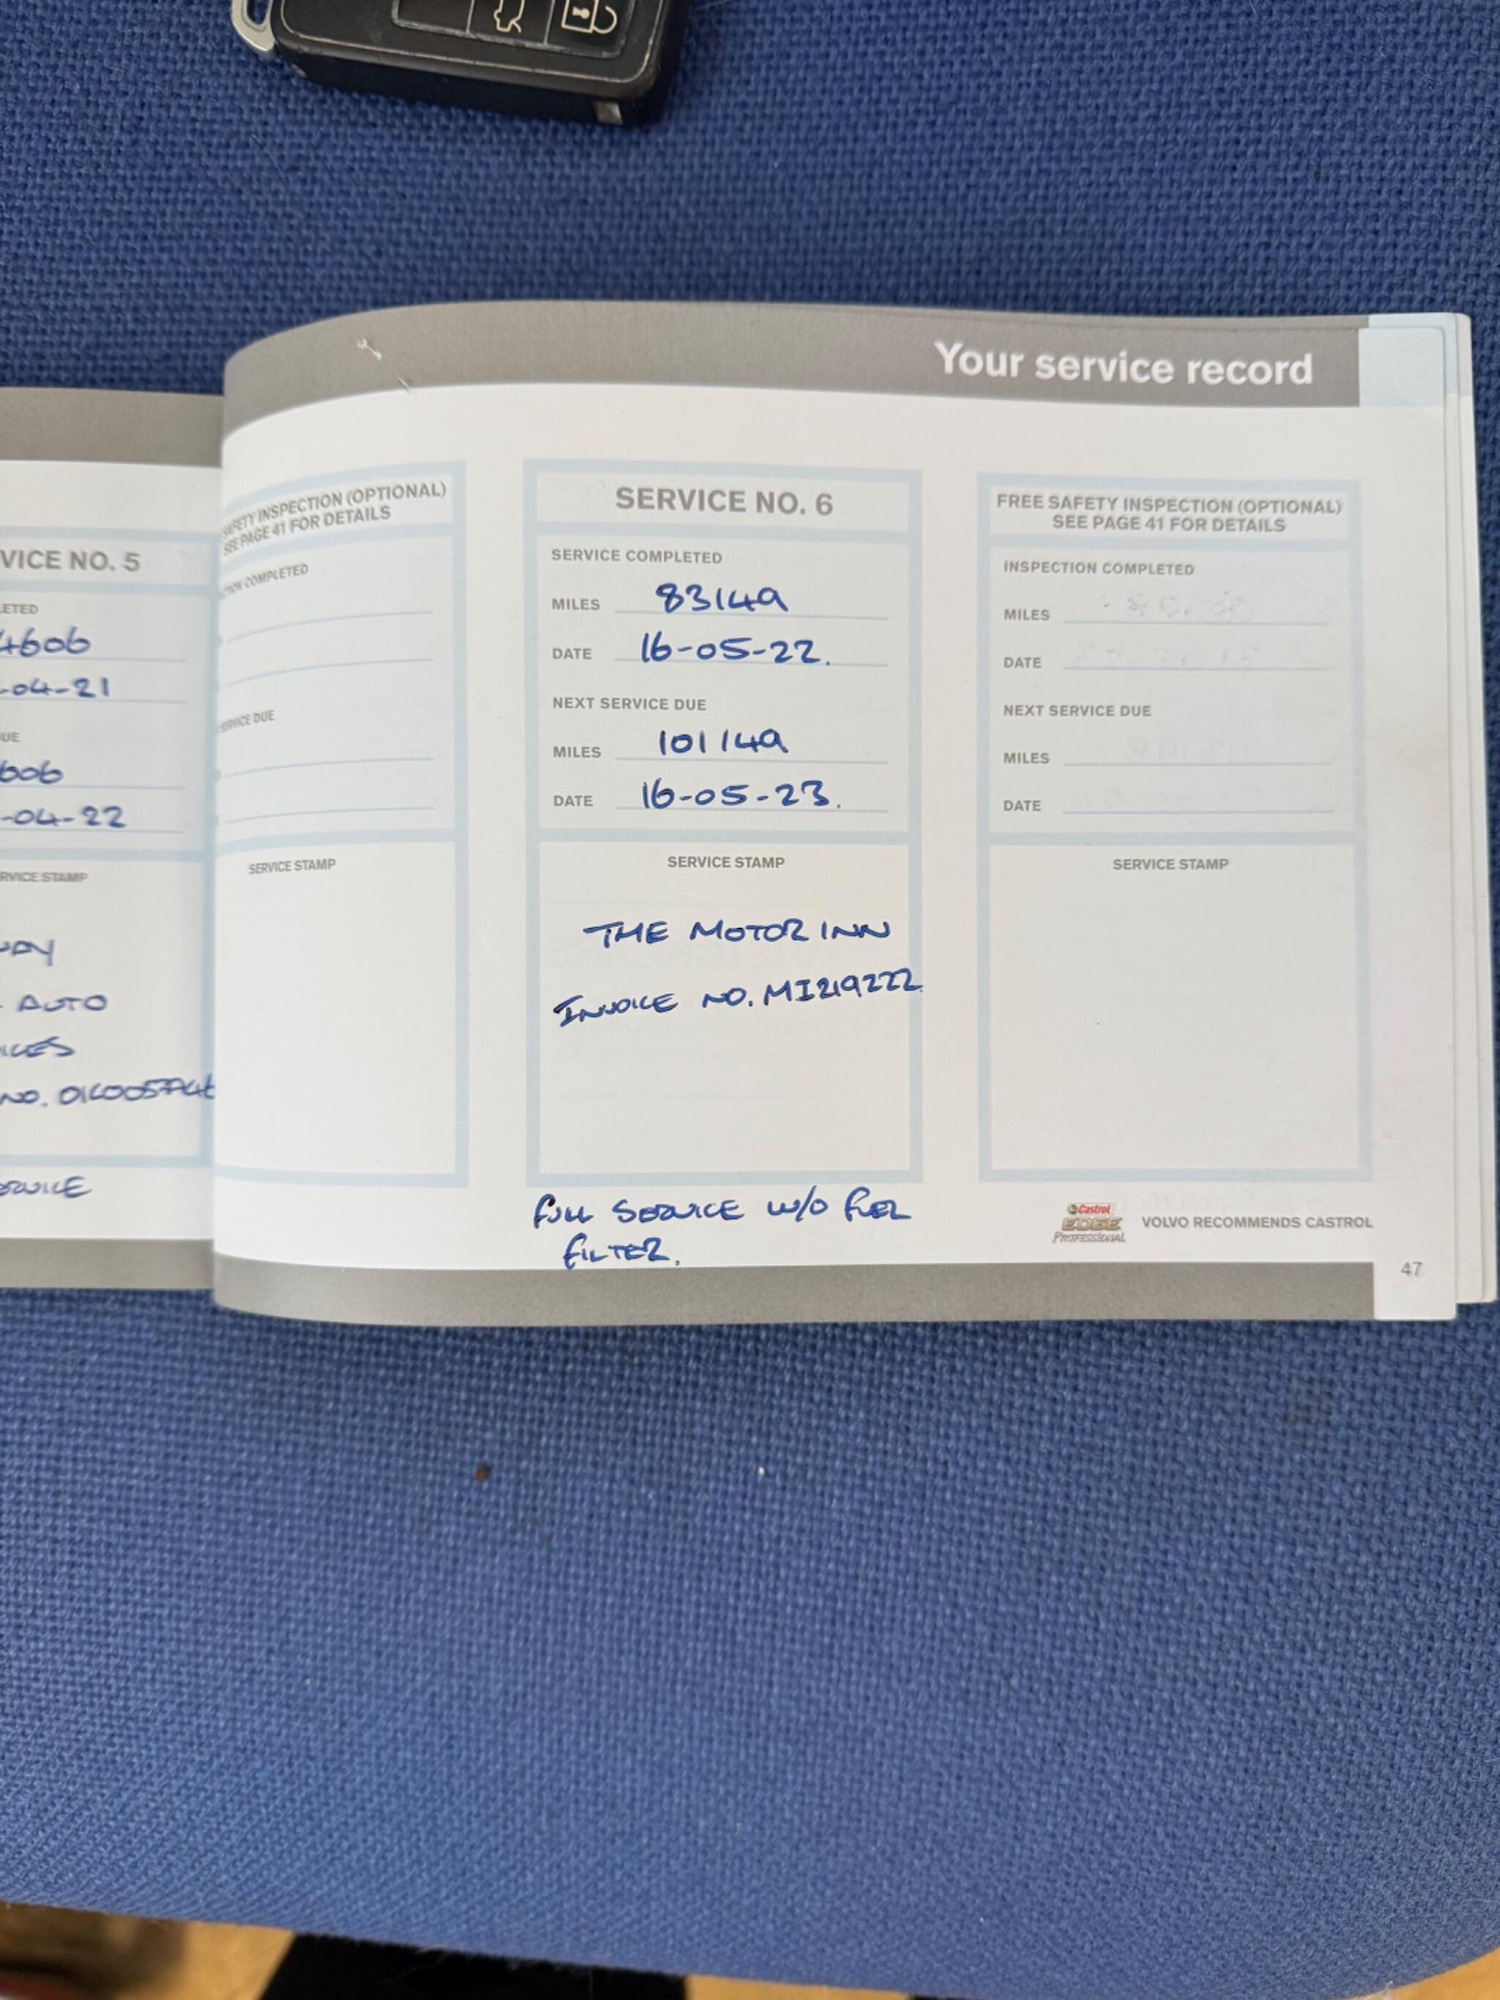 Your service record
VICE NO. 5
ETED
4606
-04-21
UE
606
-04-22
RVICE STAMP
AUTO
NO.
SAFETY INSPECTION (OPTIONAL)
SEE PAGE 41 FOR DETAILS
CTION COMPLETED
SERVICE DUE
SERVICE STAMP
SERVICE NO. 6
SERVICE COMPLETED
MILES 83149
DATE 16-05-22.
NEXT SERVICE DUE
MILES 101149
DATE 16-05-23.
SERVICE STAMP
THE MOTOR INN
INVOICE NO. MI219222
FULL SERVICE W/O FUEL
FILTER.
FREE SAFETY INSPECTION (OPTIONAL)
SEE PAGE 41 FOR DETAILS
INSPECTION COMPLETED
MILES
DATE
NEXT SERVICE DUE
MILES
DATE
SERVICE STAMP
Castrol
EDGE
PROFESSIONAL
VOLVO RECOMMENDS CASTROL
47